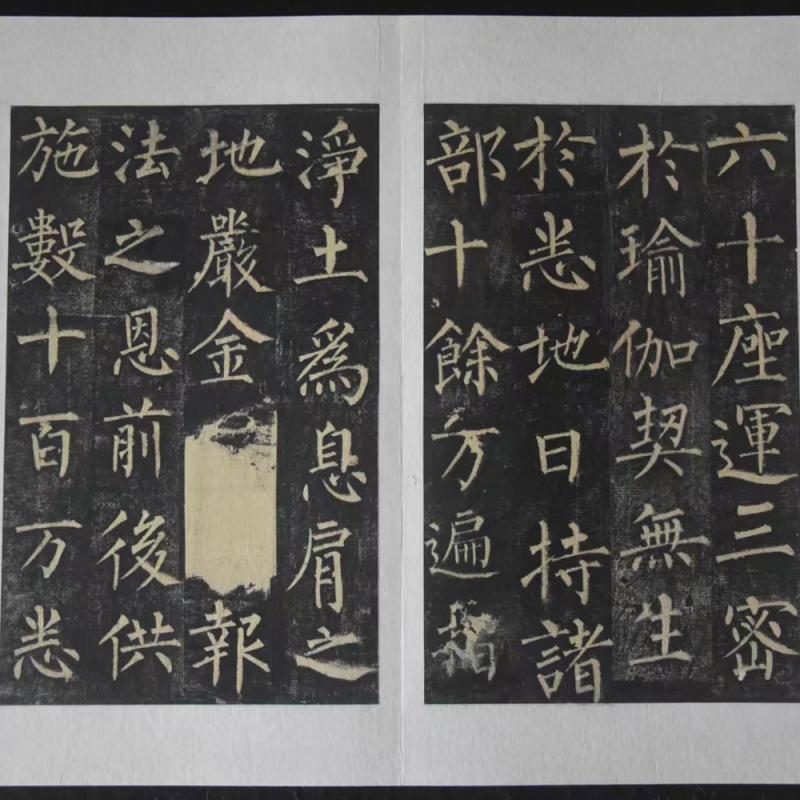 六十座運三密
於瑜伽契無生
於悉地日持諸
部十餘万遍指
淨土爲息肩之
地嚴金報
法之恩前後供
施數十百万悉